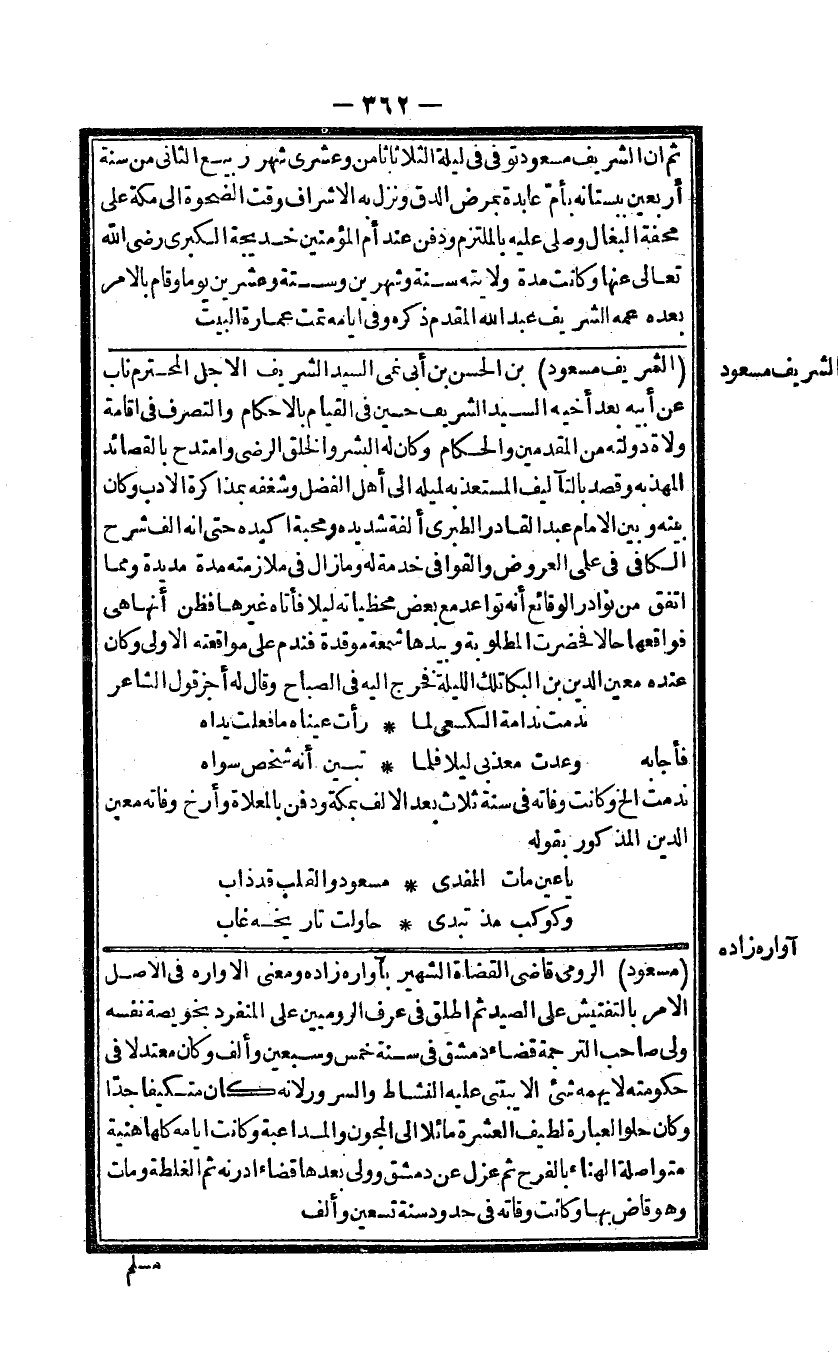 — ٣٦٢ —
ثم ان الشريف مسعود توفى فى ليلة الثلاثا ثامن وعشرى شهر ربيع الثانى من سنة
أربعين ببستانه بأم عابدة بمرض الدق ونزل به الاشراف وقت الضحوة الى مكة على
محفة البغال وصلى عليه بالملتزم ودفن عند أم المؤمنين خديجة الكبرى رضى الله
تعالى عنها وكانت مدة ولايته سنة وشهرين وستة وعشرين يوما وقام بالامر
بعده عمه الشريف عبد الله المقدم ذكره وفى ايامه تمت عمارة البيت
الشريف مسعود
(الشريف مسعود) بن الحسن بن أبى نمى السيد الشريف الاجل المحترم ناب
عن أبيه بعد أخيه السيد الشريف حسين فى القيام بالاحكام والتصرف فى اقامة
ولاة دولته من المقدمين والحكام وكان له البشر والخلق الرضى وامتدح بالقصائد
المهذبه وقصد بالتآليف المستعذبه لميله الى أهل الفضل وشغفه بمذاكرة الادب وكان
بينه وبين الامام عبد القادر الطبرى ألفة شديده ومحبة اكيده حتى انه الف شرح
الكافى فى علمى العروض والقوافى خدمة له ومازال فى ملازمته مدة مديدة ومما
اتفق من نوادر الوقائع أنه تواعد مع بعض محظياته ليلا فأتاه غيرها فظن أنها هى
فواقعها حالا فحضرت المطلوبة وبيدها شمعة موقدة فندم على مواقعته الاولى وكان
عنده معين الدين بن البكا تلك الليلة فخرج اليه فى الصباح وقال له أجز قول الشاعر
ندمت ندامة الكسعى لما * رأت عيناه ما فعلت يداه
فأجابه وعدت معذبى ليلا فلما * تبين أنه شخص سواه
ندمت الخ وكانت وفاته فى سنة ثلاث بعد الالف بمكة ودفن بالمعلاة وأرخ وفاته معين
الدين المذكور بقوله
ياعين مات المفدى * مسعود والقلب قد ذاب
وكوكب مذ تبدى * حاولت تاريخه غاب
آواره زاده
(مسعود) الرومى قاضى القضاة الشهير بآواره زاده ومعنى الاواره فى الاصل
الامر بالتفتيش على الصيد ثم اطلق فى عرف الروميين على المنفرد بخويصة نفسه
ولى صاحب الترجمة قضاء دمشق فى سنة خمس وسبعين وألف وكان معتدلا فى
حكومته لا يهمه شئ الا يبتنى عليه النشاط والسرور لانه كان متكيفا جدّا
وكان حلو العبارة لطيف العشرة مائلا الى المجون والمداعبة وكانت ايامه كلها هنية
متواصلة الهناء بالفرح ثم عزل عن دمشق وولى بعدها قضاء ادرنه ثم الغلطة ومات
وهو قاض بها وكانت وفاته فى حدود سنة تسعين وألف
مسلم